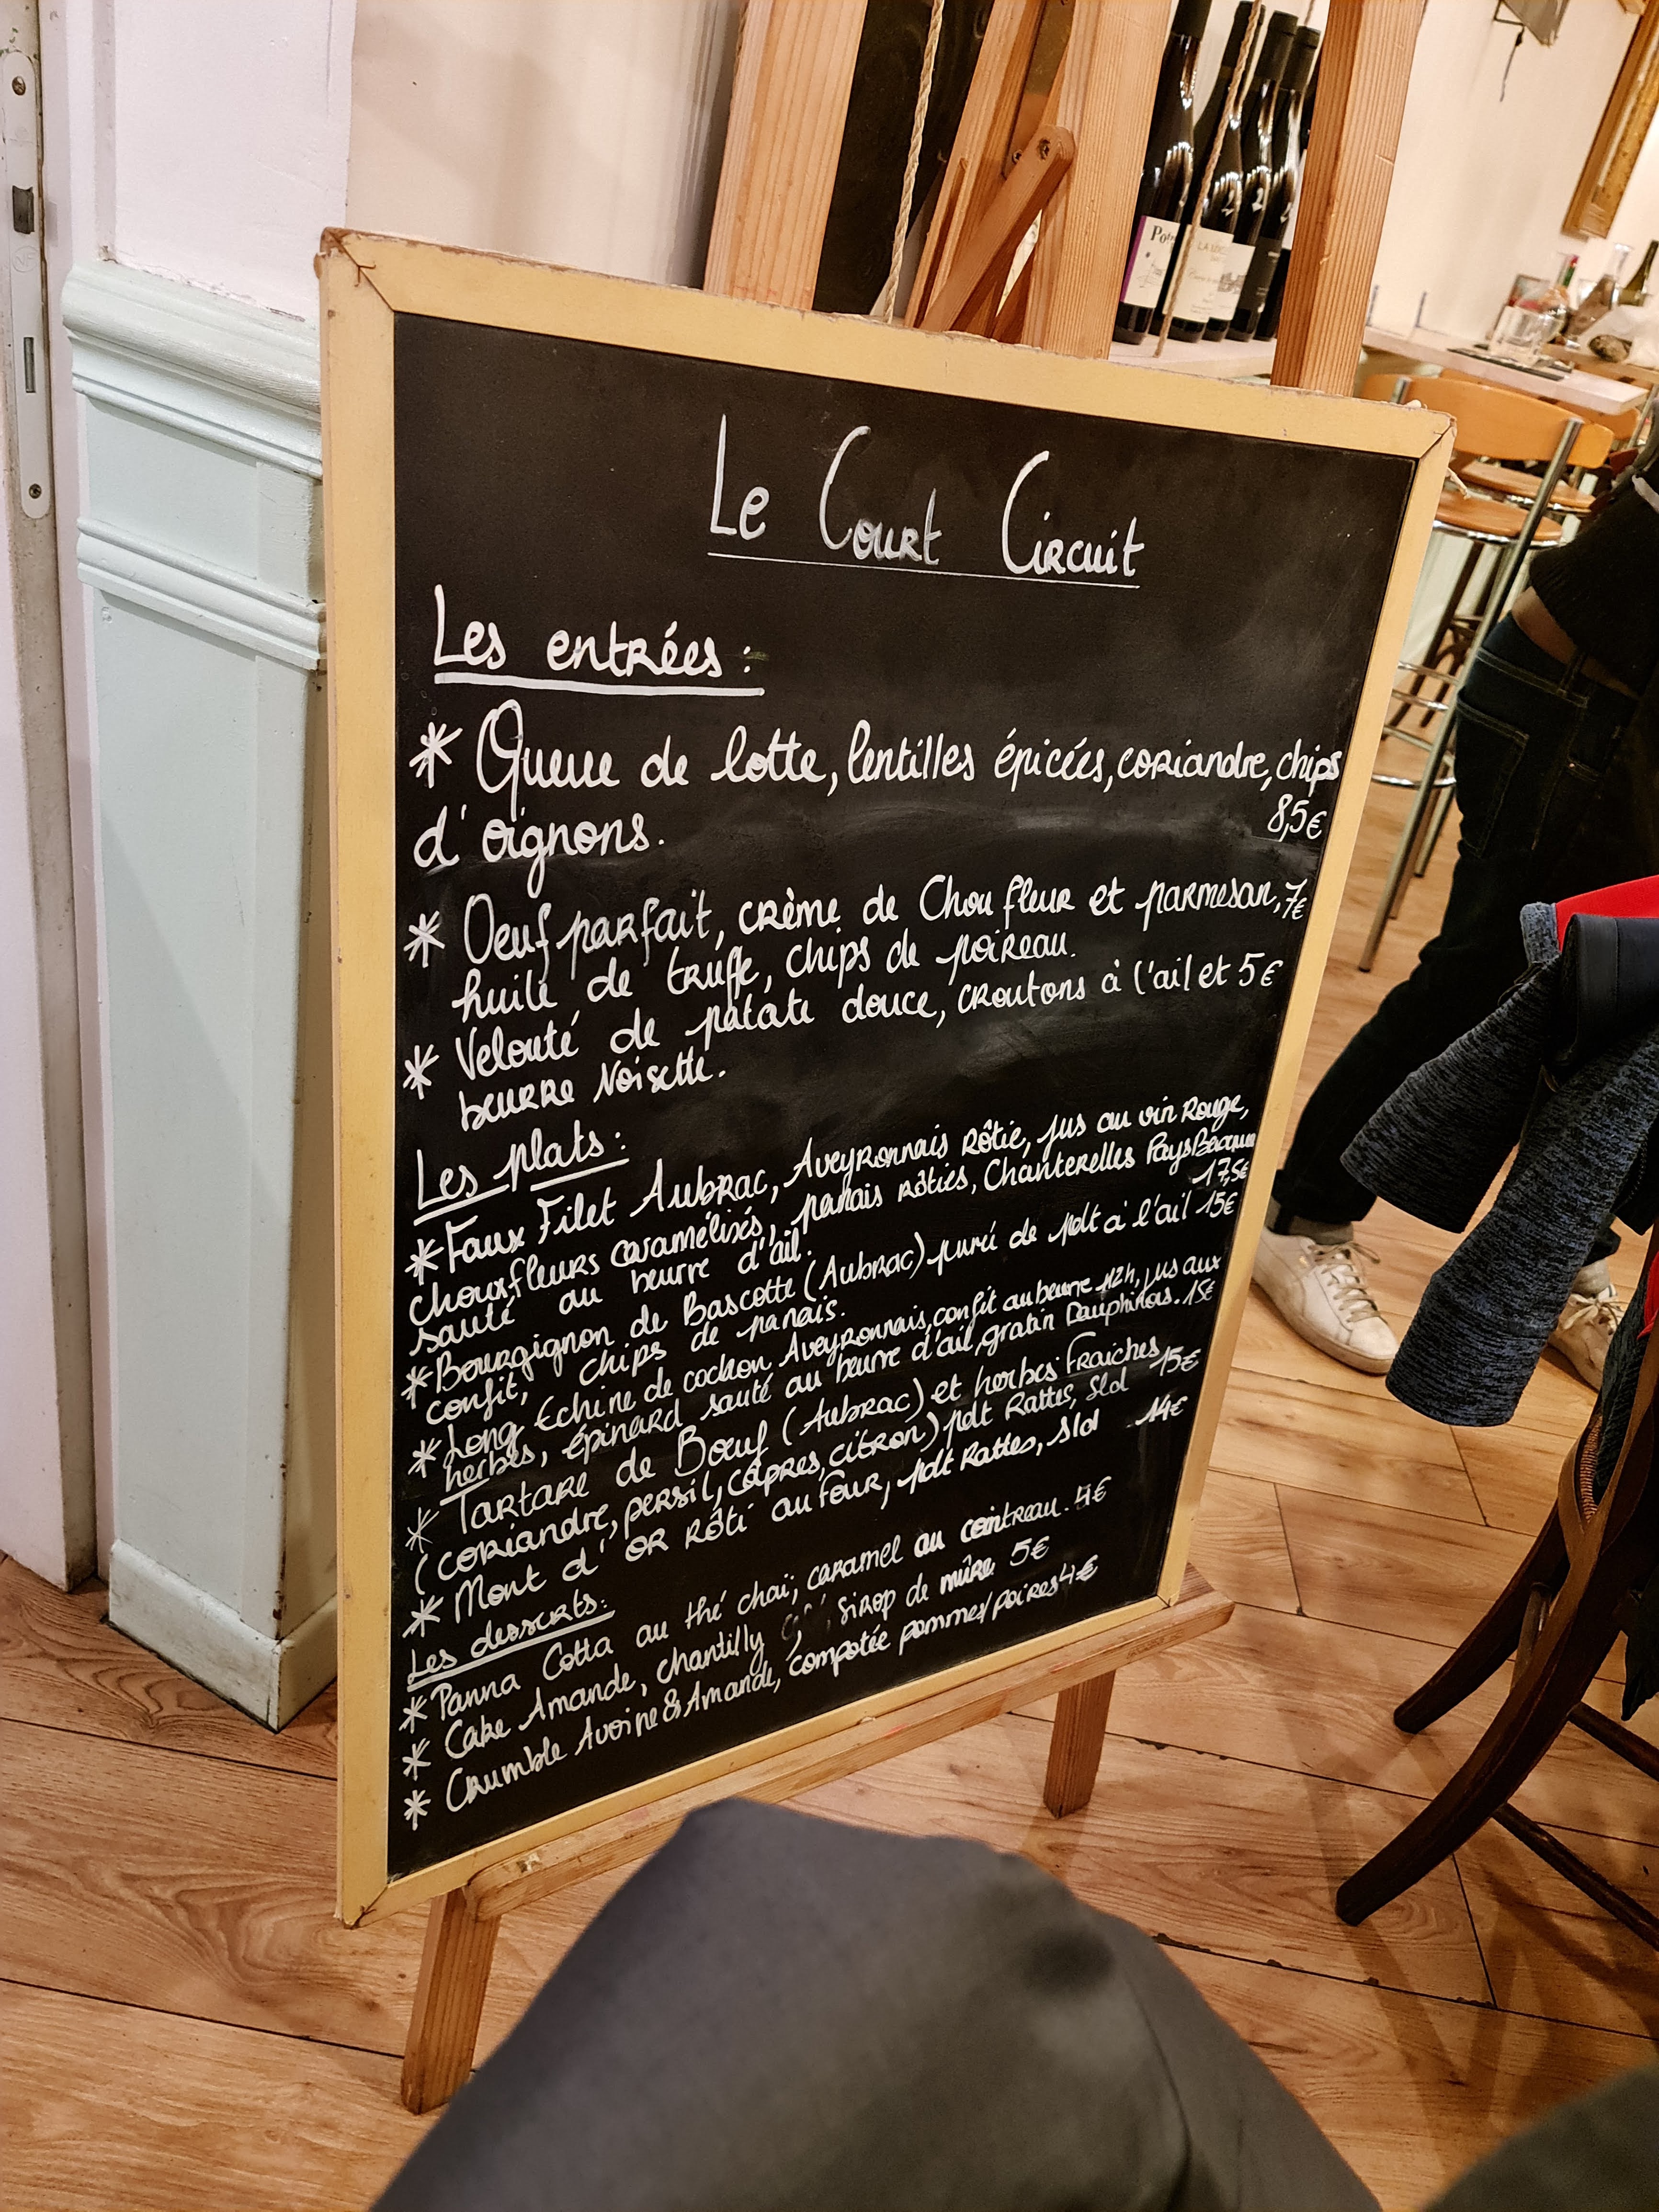 Le Court Circuit
Les entrées :
* Queue de lotte, lentilles épicées, coriandre, chips
8,5€
d'oignons.
* Oeuf parfait, crème de Chou fleur et parmesan, 7€
huile de truffe, chips de poireau.
* Velouté de patate douce, croutons à l'ail et 5€
beurre Noisette.
Les plats :
* Faux Filet Aubrac, Aveyronnais Rôtie, jus au vin Rouge,
chouxfleurs caramélisés, panais rôtiés, Chanterelles Pays
17,5€
sauté au beurre d'ail.
* Bourgignon de Bascotte (Aubrac) purée de pdt à l'ail 15€
confit, chips de panais.
* Long Echine de cochon Aveyronnais, confit au beurre 12h, jus aux
herbes, épinard sauté au beurre d'ail, gratin Dauphinois. 15€
* Tartare de Boeuf (Aubrac) et herbes Fraiches 15€
(coriandre, persil, câpres, citron) pdt Rattes, Sld
* Mont d'or Rôti au four, pdt Rattes, Sld 14€
Les desserts:
* Panna Cotta au thé chaï, caramel au cointreau. 4€
* Cake Amande, chantilly, sirop de mûre 5€
* Crumble Avoine & Amande, compotée pommes/poires 4€